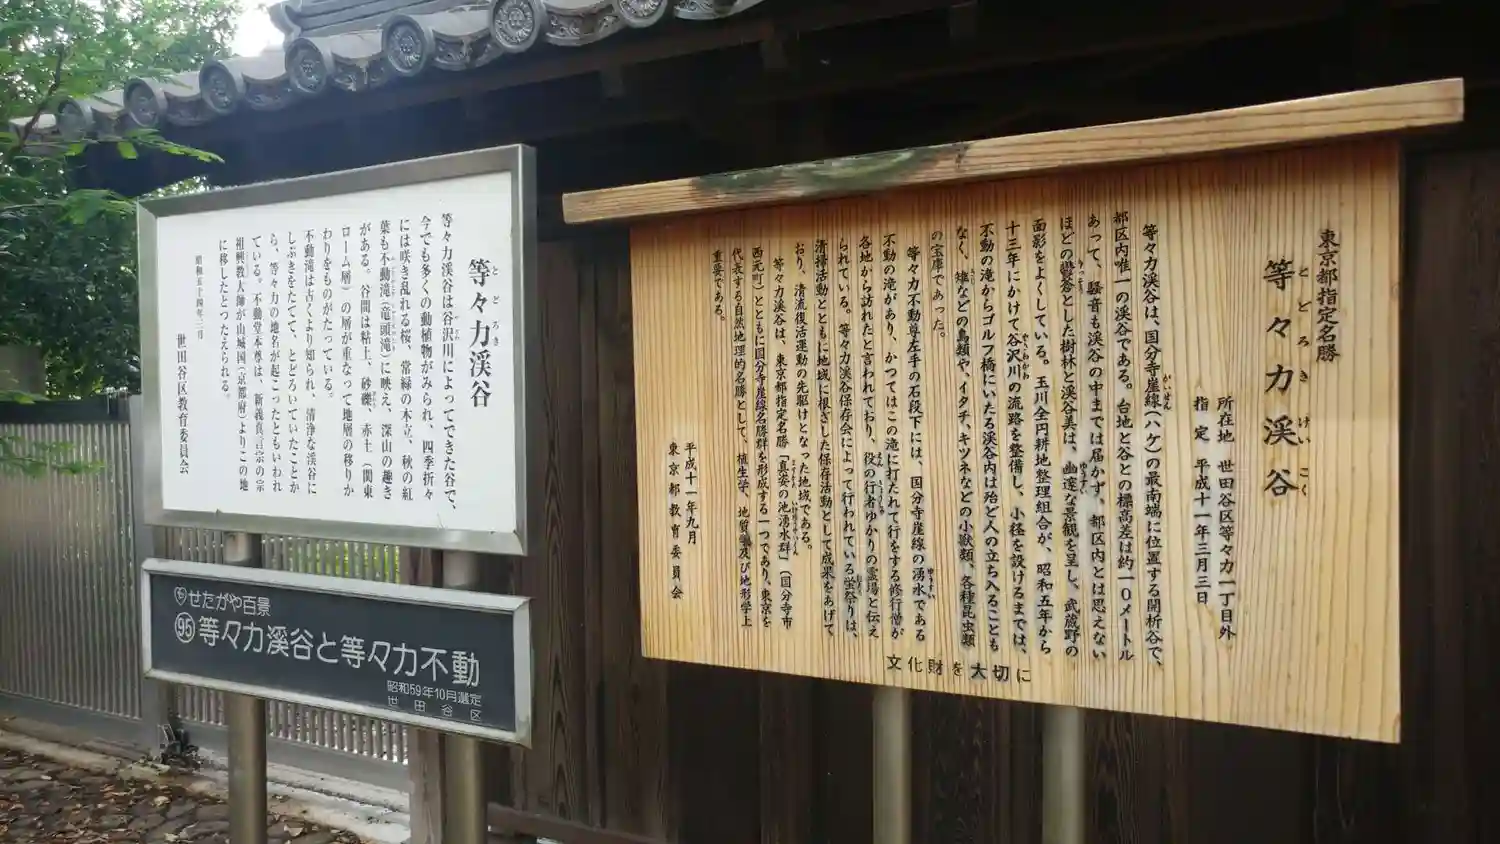 東京都指定名勝
等々力渓谷
とどろきけいこく
所在地 世田谷区等々力一丁目外
指定 平成十一年三月三日
等々力渓谷は、国分寺崖線(ハケ)の最南端に位置する開析谷で、
都区内唯一の渓谷である。台地と谷との標高差は約一〇メートル
あって、騒音も渓谷の中までは届かず、都区内とは思えない
ほどの鬱蒼とした樹林と渓谷美は、幽邃な景観を呈し、武蔵野の
面影をよくしている。玉川全円耕地整理組合が、昭和五年から
十三年にかけて谷沢川の流路を整備し、小径を設けるまでは、
不動の滝からゴルフ橋にいたる渓谷内は殆ど人の立ち入ることも
なく、雉などの鳥類や、イタチ、キツネなどの小獣類、各種昆虫類
の宝庫であった。
等々力不動尊左手の石段下には、国分寺崖線の湧水である
不動の滝があり、かつてはこの滝に打たれて行をする修行僧が
各地から訪れたと言われており、役の行者ゆかりの霊場と伝え
られている。等々力渓谷保存会によって行われている蛍祭りは、
清掃活動とともに地域に根ざした保存活動として成果をあげて
おり、清流復活運動の先駆けとなった地域である。
等々力渓谷は、東京都指定名勝「真姿の池湧水群」(国分寺市
西元町)とともに国分寺崖線名勝群を形成する一つであり、東京を
代表する自然地理的名勝として、植生学、地質学及び地形学上
重要である。
平成十一年九月
東京都教育委員会
文化財を大切に
等々力渓谷
とどろき
等々力渓谷は谷沢川によってできた谷で、
今でも多くの動植物がみられ、四季折々
には咲き乱れる桜、常緑の木立、秋の紅
葉も不動滝(竜頭滝)に映え、深山の趣き
がある。谷間は粘土、砂礫、赤土(関東
ローム層)の層が重なって地層の移りか
わりをものがたっている。
不動滝は古くより知られ、清浄な渓谷に
しぶきをたてて、とどろいていたことか
ら、等々力の地名が起こったともいわれ
ている。不動堂本尊は、新義真言宗の宗
祖興教大師が山城国(京都府)よりこの地
に移したとつたえられる。
昭和五十四年三月
世田谷区教育委員会
せたがや百景
95 等々力渓谷と等々力不動
昭和59年10月選定
世田谷区